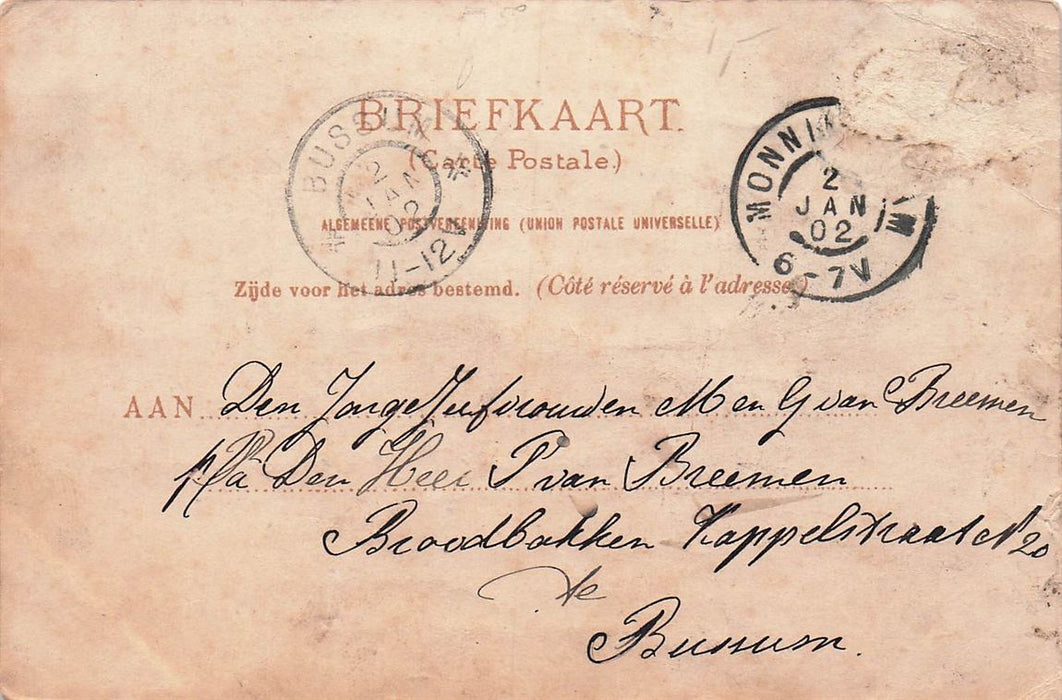 BRIEFKAART.
(Carte Postale.)
ALGEMEENE POSTVEREENIGING (UNION POSTALE UNIVERSELLE)
Zijde voor het adres bestemd. (Côté réservé à l'adresse.)
BUSSUM
2
JAN
02
11-12V
MONNI IM
2
JAN
02
6-7V
AAN Den Jonge Jufvrouwen M en G van Breemen
p/a Den Heer P van Breemen
Broodbakken Kappelstraat N 20
te
Bussum.